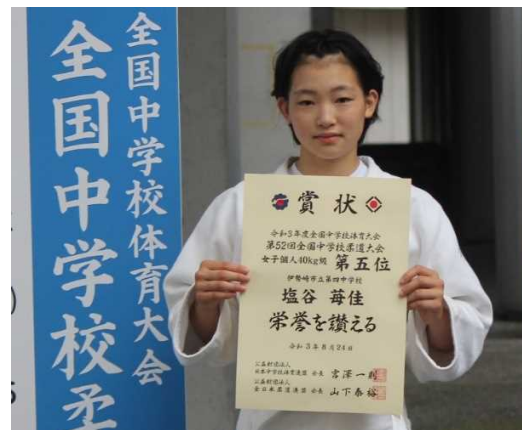 全国中学校体育大会
全国中学校柔
賞状
令和3年度全国中学校体育大会
第52回全国中学校柔道大会
女子個人40kg級 第五位
伊勢崎市立第四中学校
塩谷 苺佳
栄誉を讃える
令和3年8月24日
公益財団法人
日本中学校体育連盟 会長 宮澤一則
公益財団法人
全日本柔道連盟 会長 山下泰裕